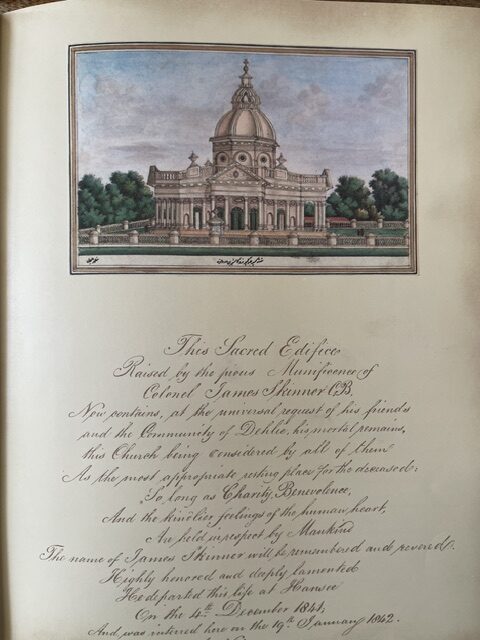 This Sacred Edifice
Raised by the pious Munificence of
Colonel James Skinner CB,
Now contains, at the universal request of his friends
and the Community of Dehlie, his mortal remains,
this Church being considered by all of them
As the most appropriate resting place for the deceased:
So long as Charity, Benevolence,
And the kindlier feelings of the human heart,
Are held in respect by Mankind
The name of James Skinner will be remembered and revered.
Highly honored and deeply lamented
He departed this life at Hansee
On the 4th December 1841,
And was interred here on the 19th January 1842.